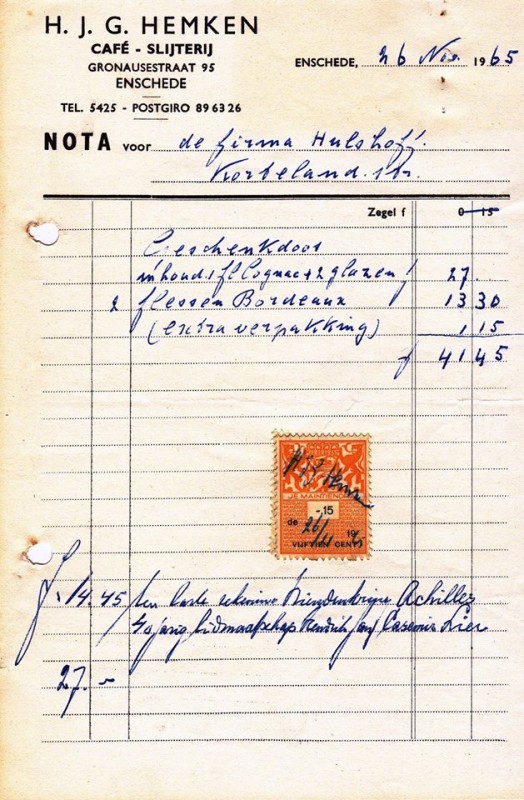 H. J. G. HEMKEN
CAFÉ - SLIJTERIJ
GRONAUSESTRAAT 95
ENSCHEDE
TEL. 5425 - POSTGIRO 896326
ENSCHEDE, 26 Nov. 1965
NOTA voor de firma Hulshoff.
Korteland. str.
Zegel f 0 15
Geschenkdoos
inhoud 1 fl Cognac + 2 glazen f 27.
2 flessen Bordeaux 13 30
(extra verpakking) 1 15
f 41 45
JE MAINTIENDRAI
-.15
de 26/11 19
VIJFTIEN CENT
f. 14.45 ten laste rekening Achilles
40 jarig lidmaatschap Hendrik
27.-